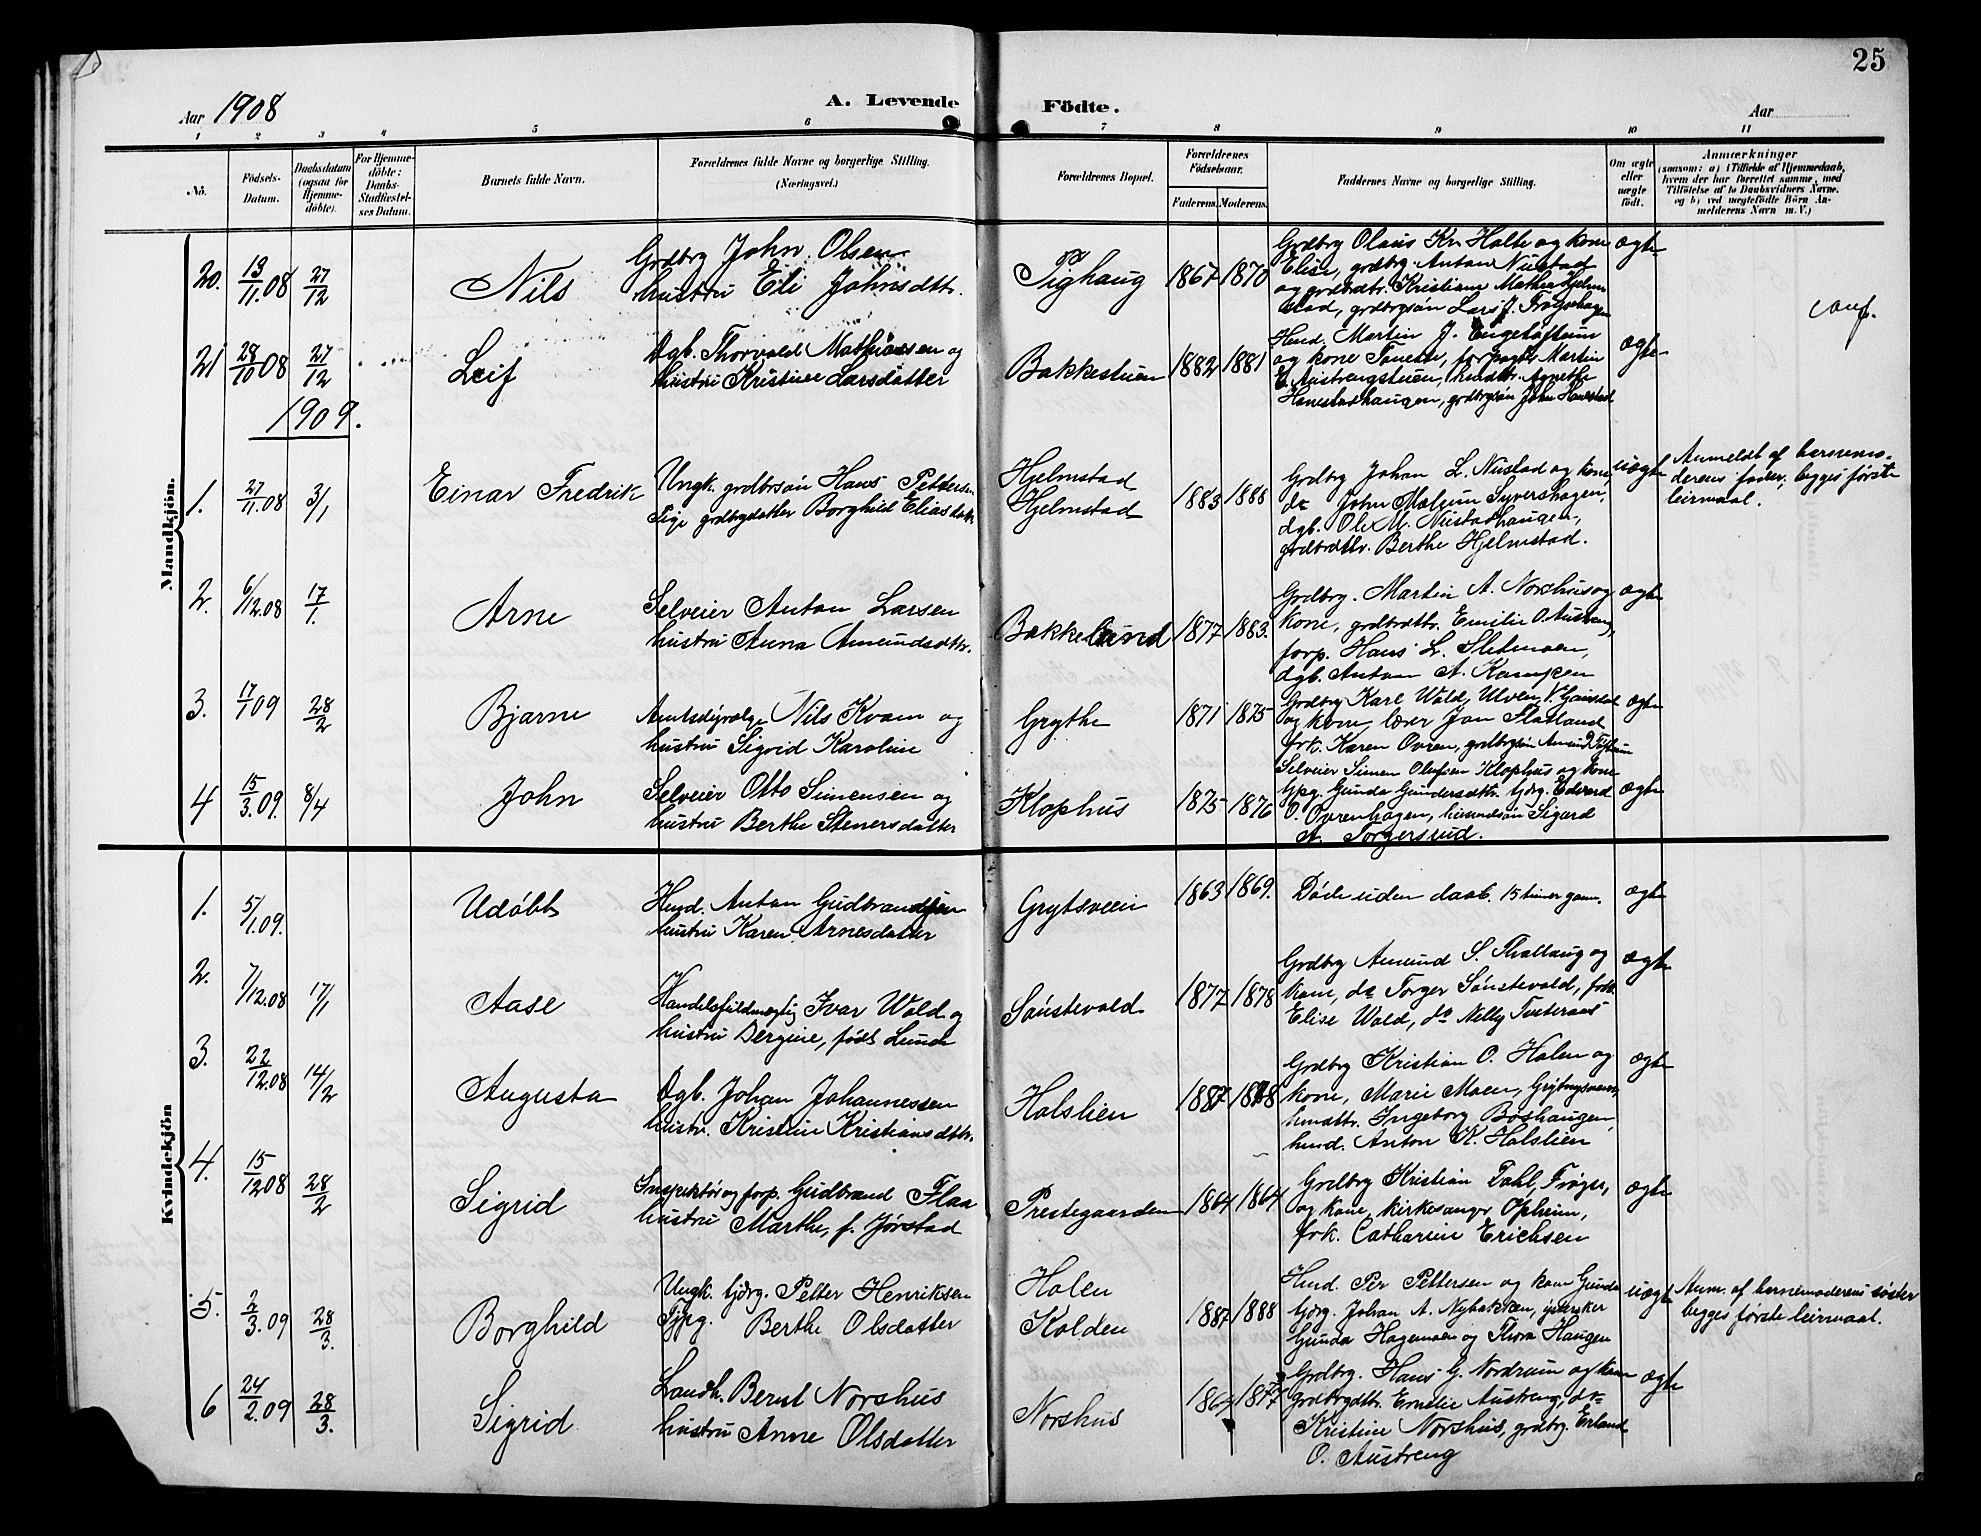 25
Aar 1908
A. Levende Födte.
Aar
1 2 3 4 5 6 7 8 9 10 11
No.
Födsels-Datum.
Daabsdatum (ogsaa for Hjemmedöbte).
For Hjemmedöbte: Daabs-Stadfæstelses Datum.
Barnets fulde Navn.
Forældrenes fulde Navne og borgerlige Stilling. (Næringsvei.)
Forældrenes Bopæl.
Forældrenes Födselsaar.
Faderens. Moderens.
Faddernes Navne og borgerlige Stilling.
Om ægte eller uægte födt.
Anmærkninger
(saasom: a) i Tilfælde af Hjemmedaab, hvem der har forrettet samme, med Tilföielse af to Daabsvidners Navne. og b) ved uægtefödte Börn Anmelderens Navn m. V.)
Mandkjön.
20. 19/11.08 27/12 Nils
Grdbrg John Olsen
hustru Eli Johnsdttr.
Pighaug 1867 1870
Grdbrg Olaus Kr. Holte og kone
Elise, grdbrg. Anton Nustad
og grdbrdtr. Kristiane Mathea Hjelm
stad, grdbrgsøn Lars J.
ægte
conf.
21 28/10 08 27/12 Leif
Dgb. Thorvald Mathiassen og
hustru Kristine Larsdatter
Bakkestuen 1882 1881
Hmd. Martin J. Engeløftum
og kone forpagter Martin
E. Austrengstuen, hmdtr. Agnethe
Hanestadhaugen, grdbrgsøn John Hanestad
ægte
1909.
1. 27/11.08 3/1 Einar Fredrik
Ungk. grdbrsøn Hans Petters.
Pige grdbrgdatter Borghild Eliasdatt
Hjelmstad
Hjelmstad
1883 1888
Grdbrg Johan L. Nustad og kone,
do John Syvershagen,
dgb. Ole M. Nustadhaugen,
grdbrdttr. Berthe Hjelmstad.
uægte
Anmeldt af barnemo-
derens fader, begges første
leirmaal.
2. 6/12.08 17/1. Arne
Selveier Anton Larsen
hustru Anna Amundsdttr.
Bakkelund 1877 1883.
Grdbrg. Martin A. Norshus og
kone, grdbrdttr. Emilie O. Austreng,
forp. Hans L. Sletmoen,
dgb. Anton A.
ægte
3. 17/1 09 28/2 Bjarne
Nils Kvam og
hustru Sigrid Karoline
Grythe 1871 1875
Grdbrg Karl Wold, Ulven, V. Gausdal
og kone, lærer Jon Flatland
frk. Karen Ovren, grdbrgsøn Amund
ægte
4 15/3.09. 8/4 John
Selveier Otto Simensen og
hustru Berthe Stenersdatter
Klophus 1875 1876
Selveier Simen Olufsen Klophus og kone
Gpg. Gunda Gundersdttr. tjdrg. Edvard
O. Ovrenhagen, husmdsøn Sigurd
A. Torgersrud.
ægte
Kvindekjön
1. 5/1.09. Udøbt
Hmd. Anton Gudbrandsen
hustru Karen Arnesdatter
Grytsveen 1863 1869.
Døde uden daab. 15 timer gam.
ægte
2. 7/12.08 17/1 Aase
Handelsfuldmægtig Ivar Wold og
hustru Bergine, født Lunde
Sønstevold 1877 1878
Grdbrg Amund S. Thallaug og
kone, do Torger Sønstevold, frk.
Elise Wold, do Nelly Tveteraas
ægte
3. 22/12.08 14/2 Augusta
Dgb. Johan Johannessen
hustr. Kristine Kristiansdttr.
Holslien 1887 1888
Grdbrg Kristian O. Holen og
kone, Marie Moen,
hmdttr. Ingeborg Boshaugen,
hmd. Anton K. Holslien
ægte
4. 15/12 08 28/2 Sigrid
Inspektør og forp. Gudbrand Flaa
hustru Marthe, f. Jørstad
Prestegaarden 1864 1864
Grdbrg Kristian Dahl, Frøyse,
og kone, kirkesanger Opheim,
frk. Catharine Erichsen
ægte
5. 2/3.09 28/3. Borghild
Ungk. tjdrg. Petter Henriksen
Tjpg. Berthe Olsdatter
Holen
Kolden
1887 1888
Hmd. Per Pettersen og kone Gunda
tjdrg. Johan A. Nybakken,
Gunda Hagemoen og Thora Haugen
uægte
Anm. af barnemoderens søster
begges første leirmaal.
6 24/2.09 28/3. Sigrid
Landh. Bernt Norshus
hustru Anne Olsdatter
Norshus 1864 1877
Grdbrg. Hans G. Nordrum og kone
grdbrgdtr. Emelie Austreng, do
Kristine Norshus, grdbrg. Erland
O. Austreng
ægte